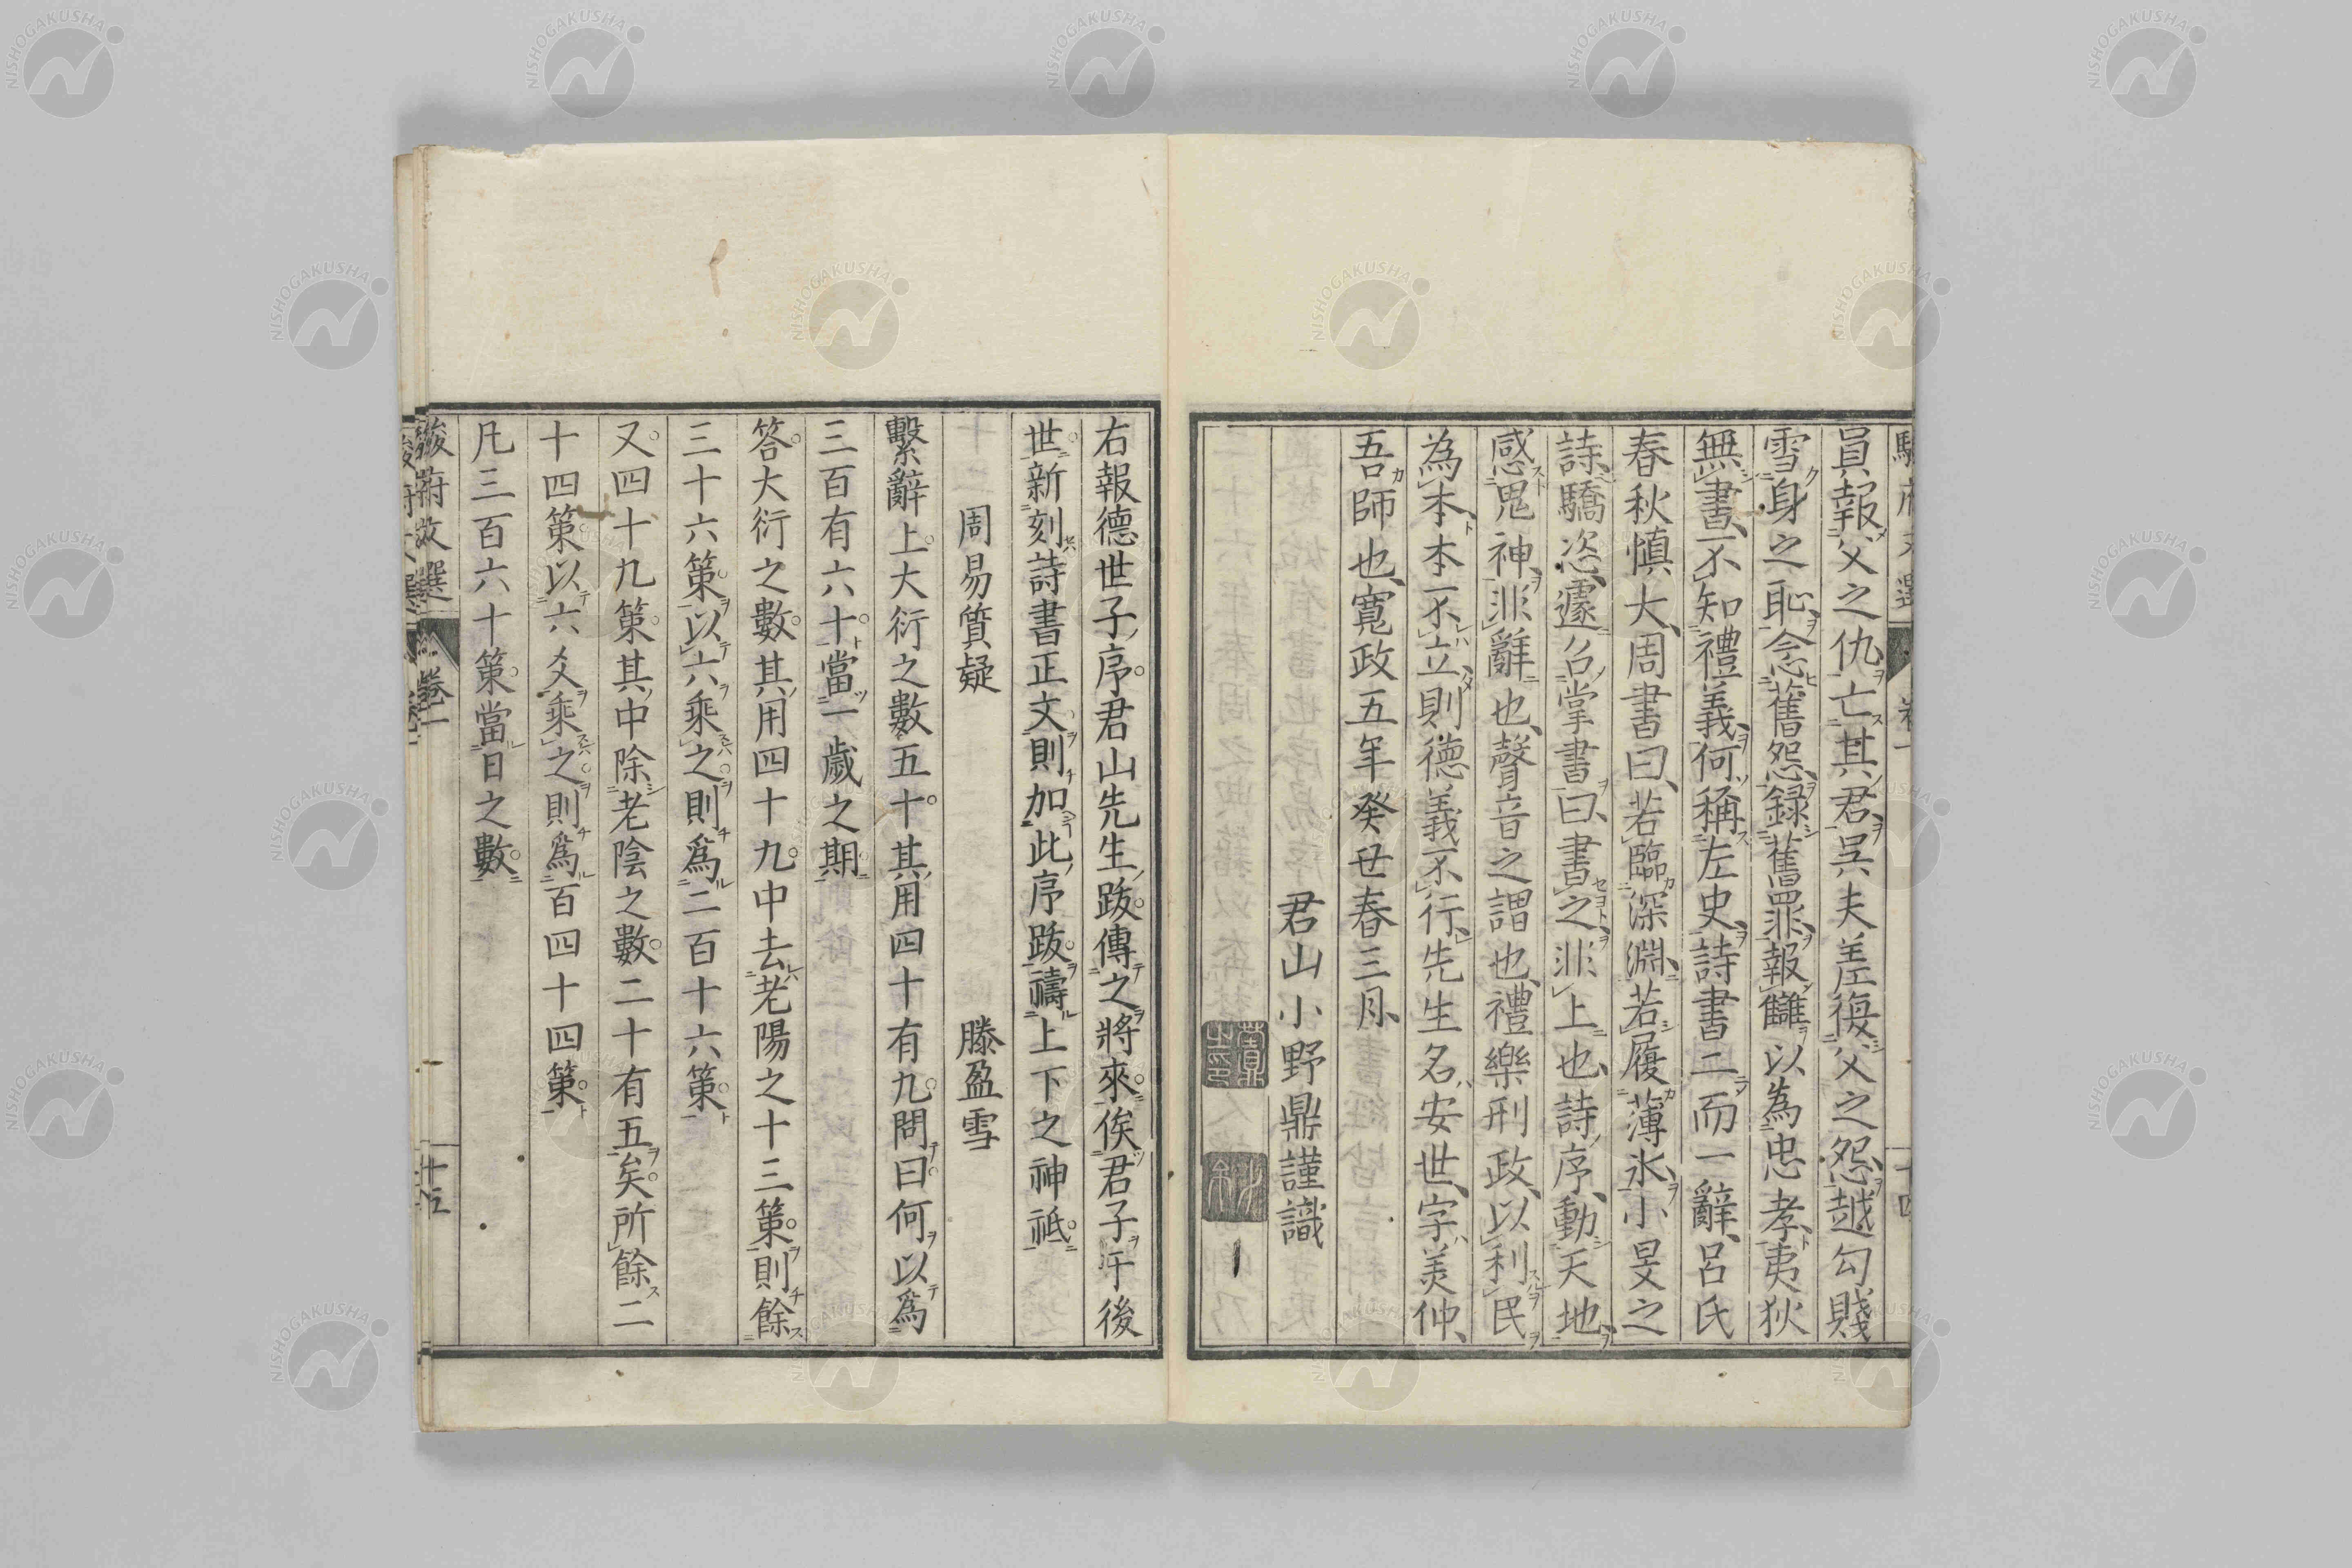 員報父之仇亡其君吳夫差復父之怨越勾賤
雪身之恥念舊怨録舊罪報讎以為忠孝夷狄
無書不知禮義何稱左史詩書二而一辭呂氏
春秋愼大周書曰若臨深淵若履薄氷小旻之
詩驕恣遽召掌書曰書之非上也詩序動天地
感鬼神非辭也聲音之謂也禮樂刑政以利民
為本本不立則德義不行先生名安世字美仲
吾師也寬政五年癸丑春三月
君山小野鼎謹識
右報德世子序君山先生跋傳之將來俟君子于後
世新刻詩書正文則加此序跋禱上下之神祗
周易質疑 滕盈雪
繫辭上大衍之數五十其用四十有九問曰何以爲
三百有六十當一歲之期
答大衍之數其用四十九中去老陽之十三策則餘
三十六策以六乘之則爲二百十六策
又四十九策其中除老陰之數二十有五矣所餘二
十四策以六爻乘之則爲百四十四策
凡三百六十策當日之數
駿府文選 卷一 十五
NISHOGAKUSHA